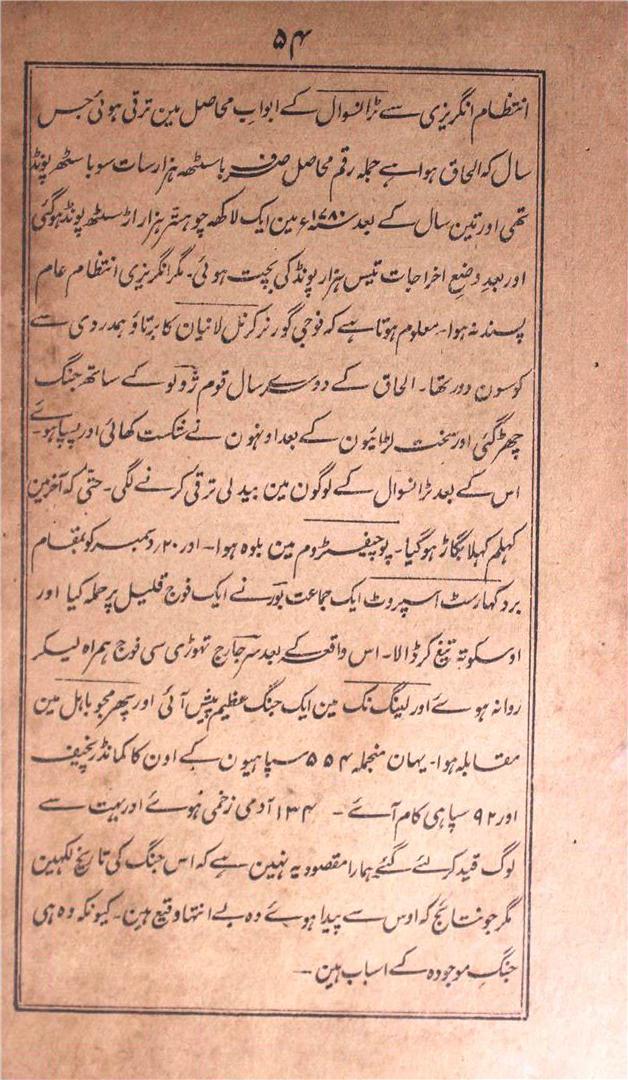 ۵۴
انتظام انگریزی سے ٹرانسوال کے ابواب محاصل مین ترقی ہوئی جس
سال کہ الحاق ہوا ہے جملہ رقم محاصل صرف باسٹھ ہزار سات سو باسٹھ پونڈ
تھی اور تین سال کے بعد سنہ ۱۷۸۰ء مین ایک لاکھہ چوہتر ہزار اڑسٹھ پونڈ ہوگئی
اور بعد وضعِ اخراجات تیس ہزار پونڈ کی بچت ہوئی۔ مگر انگریزی انتظام عام
پسند نہ ہوا۔ معلوم ہوتا ہے کہ فوجی گورنر کرنل لانیان کا برتاؤ ہمدردی سے
کوسون دور تھا۔ الحاق کے دوسرے سال قوم ژولو کے ساتھ جنگ
چھڑگئی اور سخت لڑائیون کے بعد اونہون نے شکست کھائی اور پسپا ہوئے۔
اس کے بعد ٹرانسوال کے لوگون مین بیدلی ترقی کرنے لگی۔ حتّی کہ آخر مین
کہلم کہلا بگاڑ ہوگیا۔ پوچیفسٹروم مین بلوہ ہوا۔ اور ۲۰؍ دسمبر کو بمقام
بردکہارسٹ اسپروٹ ایک جماعت بور نے ایک فوج قلیل پر حملہ کیا اور
اوسکو تہ تیغ کر ڈالا۔ اس واقعہ کے بعد سر جارج تہوڑی سی فوج ہمراہ لیکر
روانہ ہوئے اور لینگ نک مین ایک جنگ عظیم پیش آئی اور پھر مجوباہل مین
مقابلہ ہوا۔ یہان منجملہ ۵۵۴ سپاہیون کے اون کا کمانڈر نچیف
اور ۹۲ سپاہی کام آئے ۔ ۱۳۴ آدمی زخمی ہوئے اور بہت سے
لوگ قید کرلئے گئے ہمارا مقصود یہ نہین ہے کہ اس جنگ کی تاریخ لکہین
مگر جو نتائج کہ اوس سے پیدا ہوئے وہ بے انتہا وقیع ہین۔ کیونکہ وہ ہی
جنگِ موجودہ کے اسباب ہین ۔